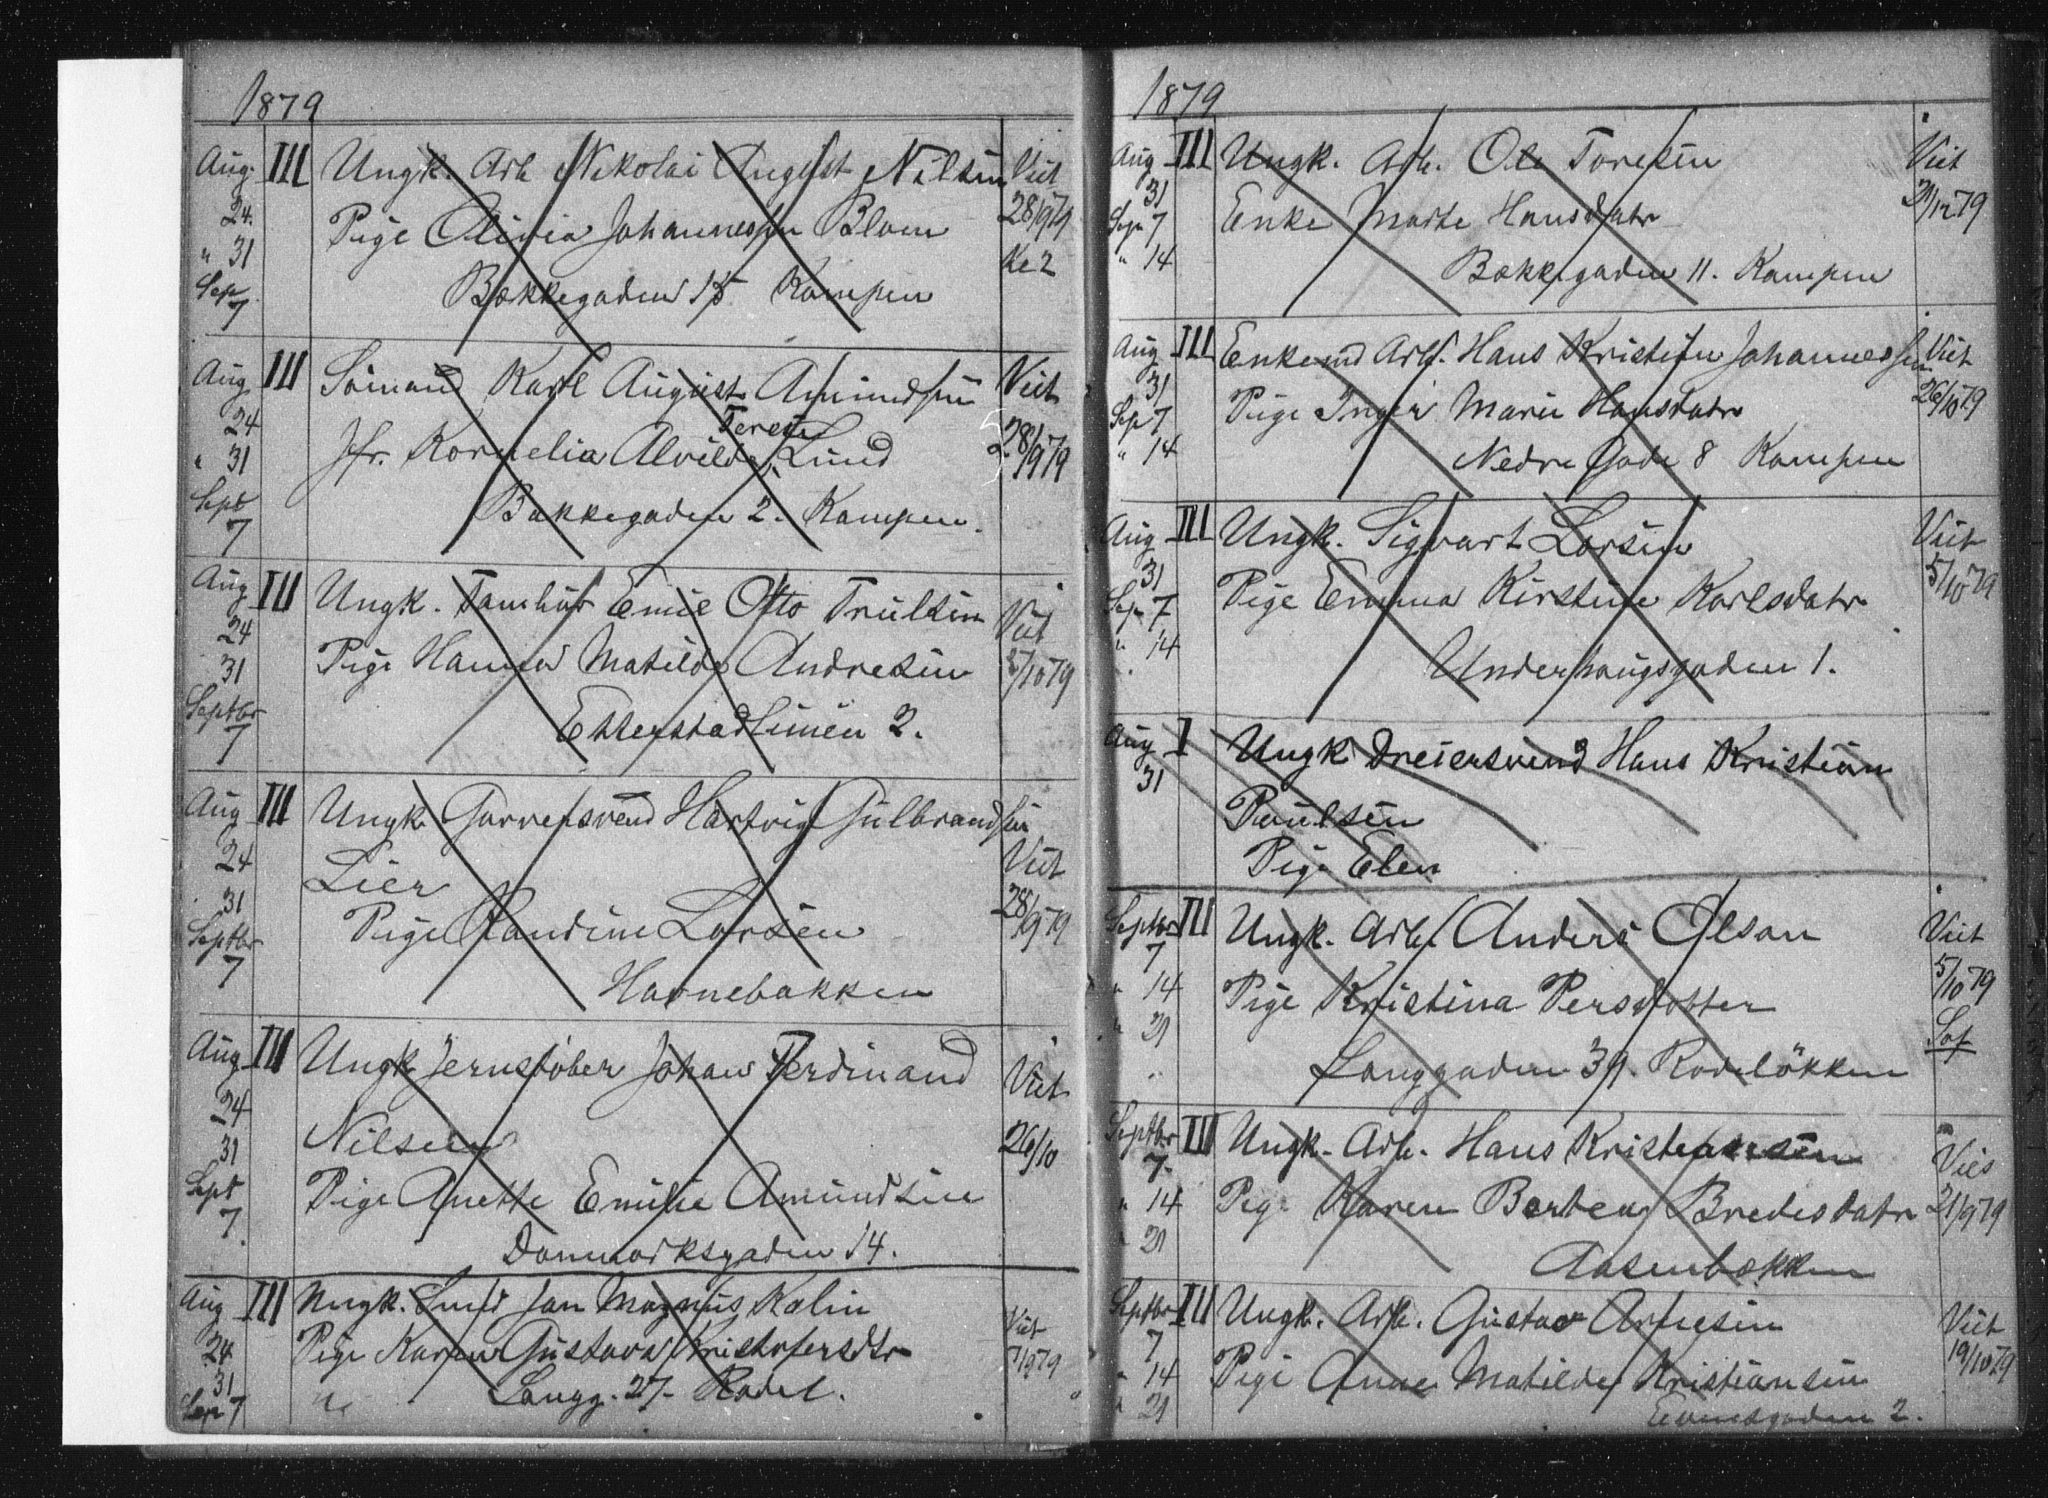 1879
Aug. 24. " 31 Sep 7
III
Ungk. Arb. Nikolai August Nilsen
Pige Olivia Johannessen Blom
Bækkegaden 15 Kampen
Viet 28/9 79
Aug 24 " 31 Sept 7
III
Sömand Karl August Amundsen
Teresie
Jfr. Kornelia Alvilde Lund
Bakkegaden 2. Kampen.
Viet 28/9 79
Aug 24 31 Septbr 7
III
Ungk. Emil Otto Trulsen
Pige Hanna Matilde Andresen
Etterstadlinien 2.
Viet /10 79
Aug 24 31 Septbr 7
III
Ungk. Garversvend Hartvig Gulbrandsen
Lier
Pige Randine Larsen
Havnebakken
Viet 28/9 79
Aug 24 31 Sept 7.
III
Ungk. Jernstöber Johan Ferdinand
Nilsen
Pige Anette Emilie Amundsen
Danmarksgaden 14.
Viet 26/10
Aug 24 31 Sep 7
III
Ungk. Smed Jan Magnus Kalin
Pige Karen Gustava Kristofersdtr
Langg. 27. Rodel.
Viet 7/9 79
1879
Aug 31 Sep 7 " 14
III
Ungk. Arb. Ole Toresen
Enke Marte Hansdatr
Bækkegaden 11. Kampen
Viet /12 79
Aug 31 Sep 7 " 14
III
Enkemd Arb. Hans Kristian Johannessen
Pige Inger Marie Hansdatr
Nedre Gade 8 Kampen
Viet 26/10 79
Aug 31 Sep 7 " 14
III
Ungk. Sigvart Larsen
Pige Emma Kirstine Karlsdatr
Underhaugsgaden 1.
Viet 5/10 79
Aug 31
I
Ungk Dreiersvend Hans Kristian
Paulsen
Pige Elen
Septbr 7 " 14 " 21
III
Ungk. Arb. Anders Olson
Pige Kristina Persdotter
Langgaden 39. Rodelökken
Viet 5/10 79
Septbr 7. " 14 " 21
III
Ungk. Arb. Hans Kristensen
Pige Karen Bertea Bredesdatr
Aasenbakken
Vies 21/9 79
Septbr 7 " 14 " 21
III
Ungk. Arb. Gustav Arnesen
Pige Anne Matilde Kristiansen
2.
Viet 19/10 79